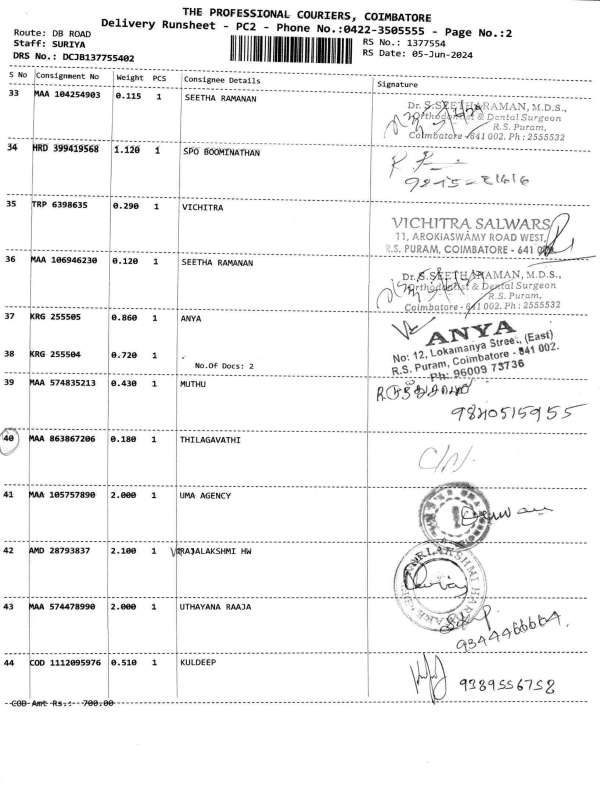 THE PROFESSIONAL COURIERS, COIMBATORE
Delivery Runsheet - PC2 - Phone No.:0422-3505555 - Page No.:2
Route: DB ROAD
Staff: SURIYA RS No.: 1377554
DRS No.: DCJB137755402 RS Date: 05-Jun-2024
S No Consignment No Weight PCS Consignee Details Signature
33 MAA 104254903 0.115 1 SEETHA RAMANAN
Dr. S. SEETHARAMAN, M.D.S.,
Orthodontist & Dental Surgeon
R.S. Puram,
Coimbatore - 641 002. Ph : 2555532
34 HRD 399419568 1.120 1 SPO BOOMINATHAN
35 TRP 6398635 0.290 1 VICHITRA
VICHITRA SALWARS
11, AROKIASWAMY ROAD WEST,
R.S. PURAM, COIMBATORE - 641
36 MAA 106946230 0.120 1 SEETHA RAMANAN
Dr. S. SEETHARAMAN, M.D.S.,
Orthodontist & Dental Surgeon
R.S. Puram,
Coimbatore - 641 002. Ph : 2555532
37 KRG 255505 0.860 1 ANYA
ANYA
No: 12, Lokamanya Street, (East)
R.S. Puram, Coimbatore - 641 002.
Ph: 96009 73736
38 KRG 255504 0.720 1
No.Of Docs: 2
39 MAA 574835213 0.430 1 MUTHU
9840515955
40 MAA 863867206 0.180 1 THILAGAVATHI
41 MAA 105757890 2.000 1 UMA AGENCY
42 AMD 28793837 2.100 1 RAJALAKSHMI HW
43 MAA 574478990 2.000 1 UTHAYANA RAAJA
9344466664
44 COD 1112095976 0.510 1 KULDEEP
9389556758
COD Amt Rs.: 700.00